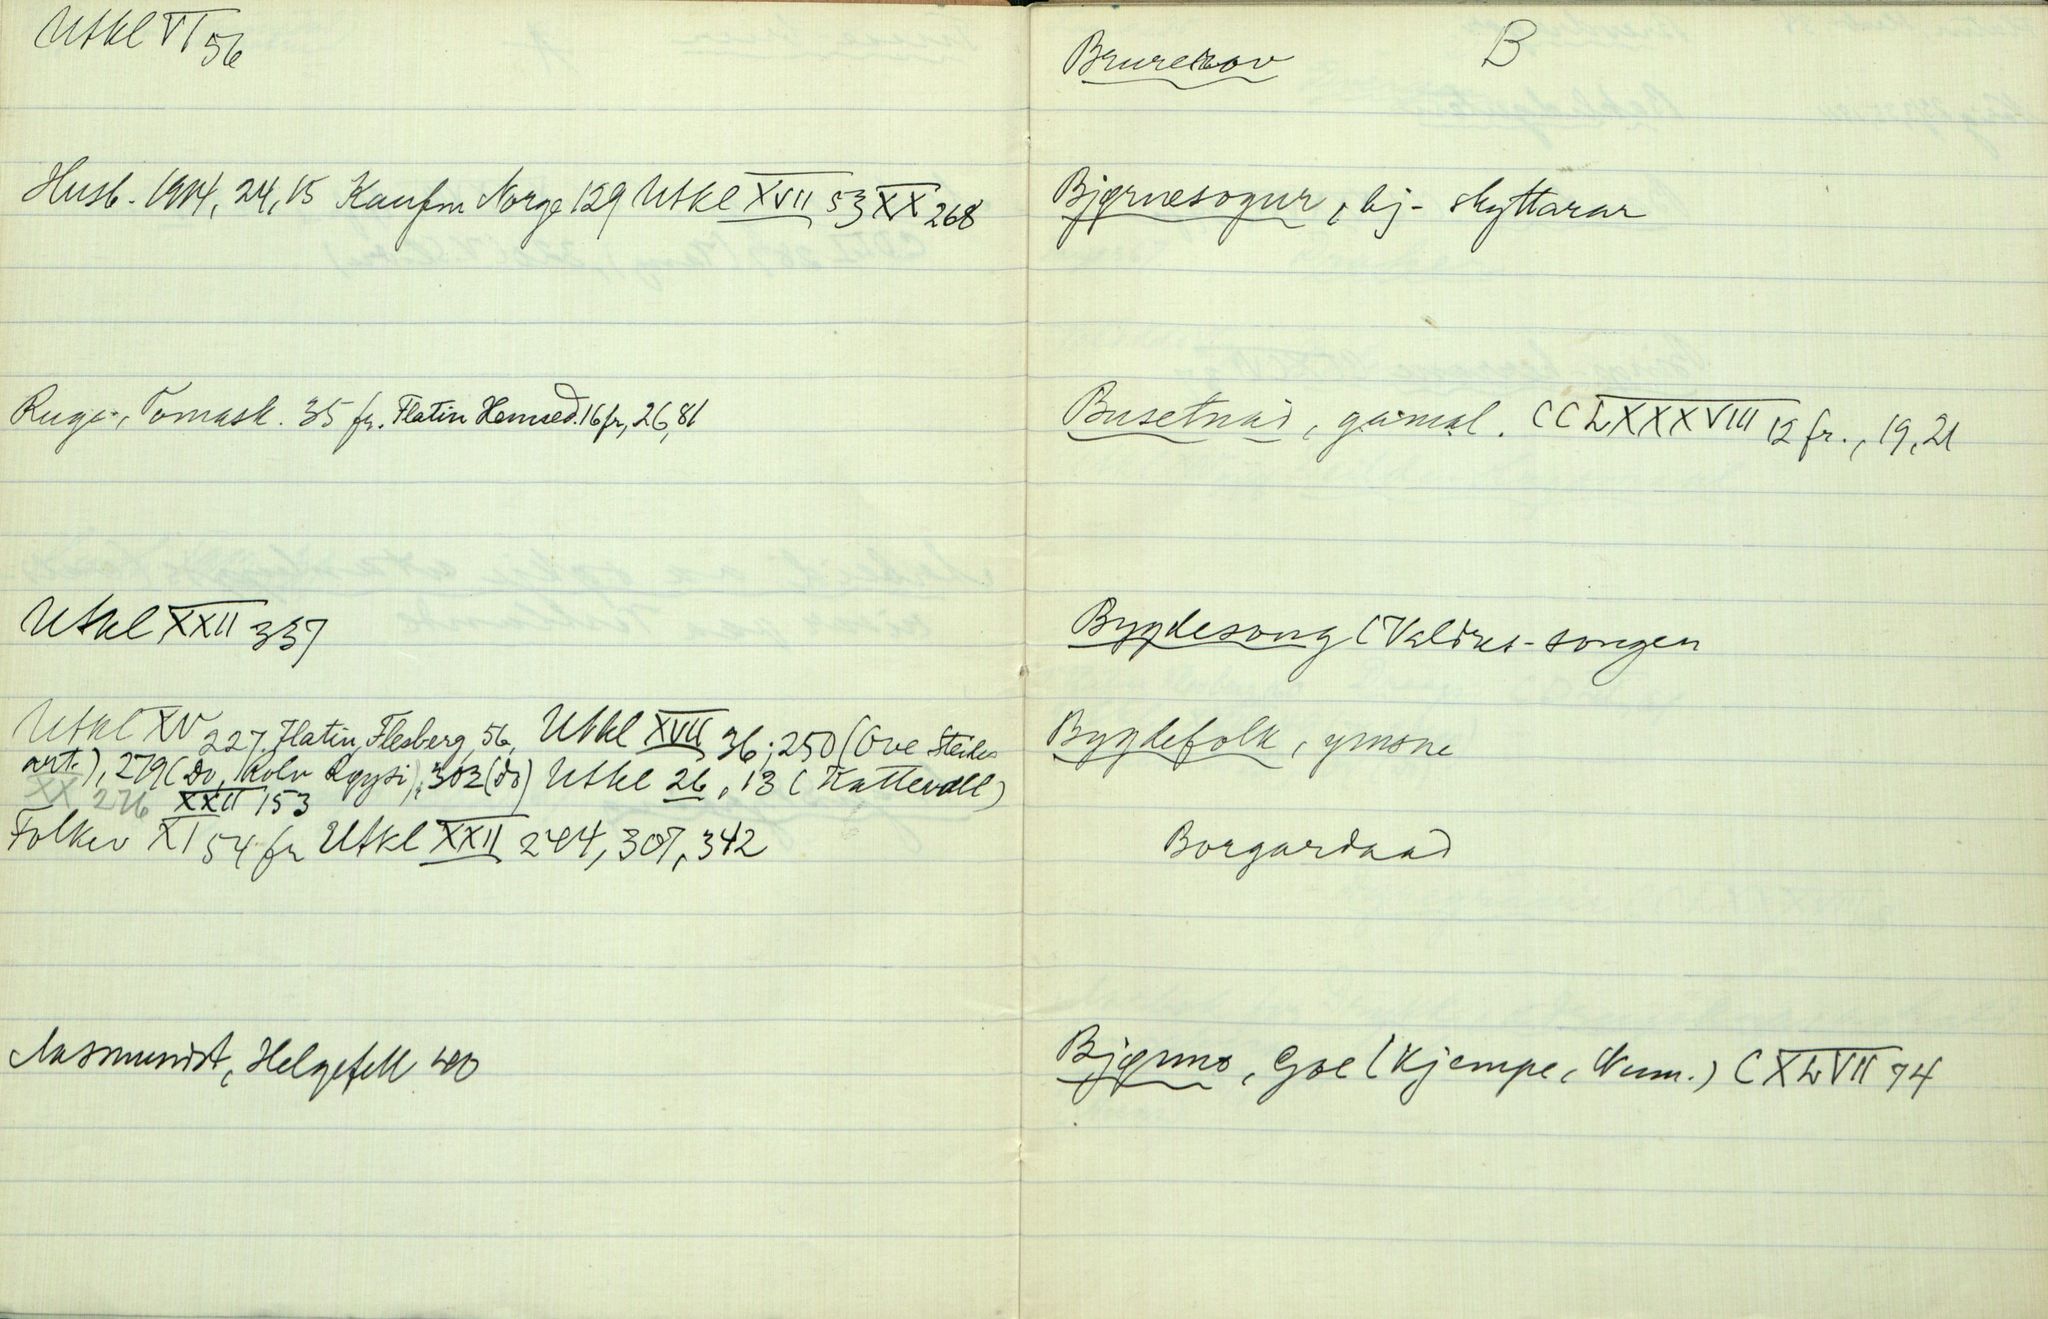 Utkl VI 56
Husb. 1914, 24, 15 Kaufm Norge 129 Utkl XVII 53 XX 268
Ruge, Tomask. 35 fr. Flatin Hemsed. 16 fr, 26, 81
Utkl XXII 337
Utkl XV 227. Flatin, Flesberg, 56, Utkl XVII 36; 250 (Ove
art.), 279 (Do, 303 (do) Utkl 26, 13 (Kattevoll)
XX 276 XXII 153
Folkev XI 54 fr Utkl XXII 244, 307, 342
Aasmundst, Helgefell 40
B
Brurerov
Bjørnesogur, bj- skyttarar
Busetnad, gamal. CCLXXXVIII 12 fr., 19, 21
Bygdesong (Valdres-songen
Bygdefolk, ymsne
Borgardaad
Bjørno, Goe (Kjempe, Num.) CXLVII 74